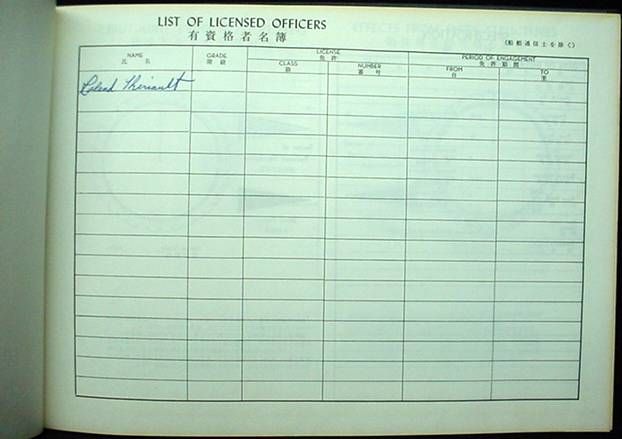 LIST OF LICENSED OFFICERS
有資格者名簿
(船舶通信士を除く)
NAME
氏名
GRADE
階級
LICENSE
免許
CLASS
NUMBER
番号
PERIOD OF ENGAGEMENT
FROM
自
TO
至
Roland Theriault